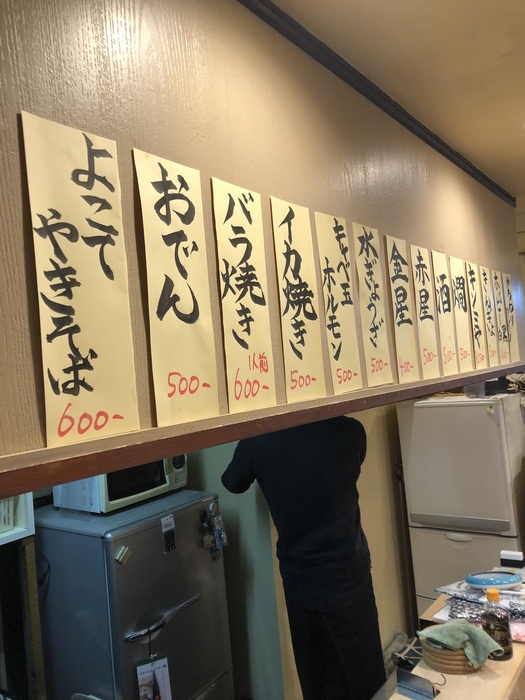 よこて
やきそば
600-
おでん
500-
バラ焼き
1人前
600-
イカ焼き
500-
キャベ玉
ホルモン
500-
水ぎょうざ
500-
金星
400-
赤星
500-
酒
500-
燗
500-